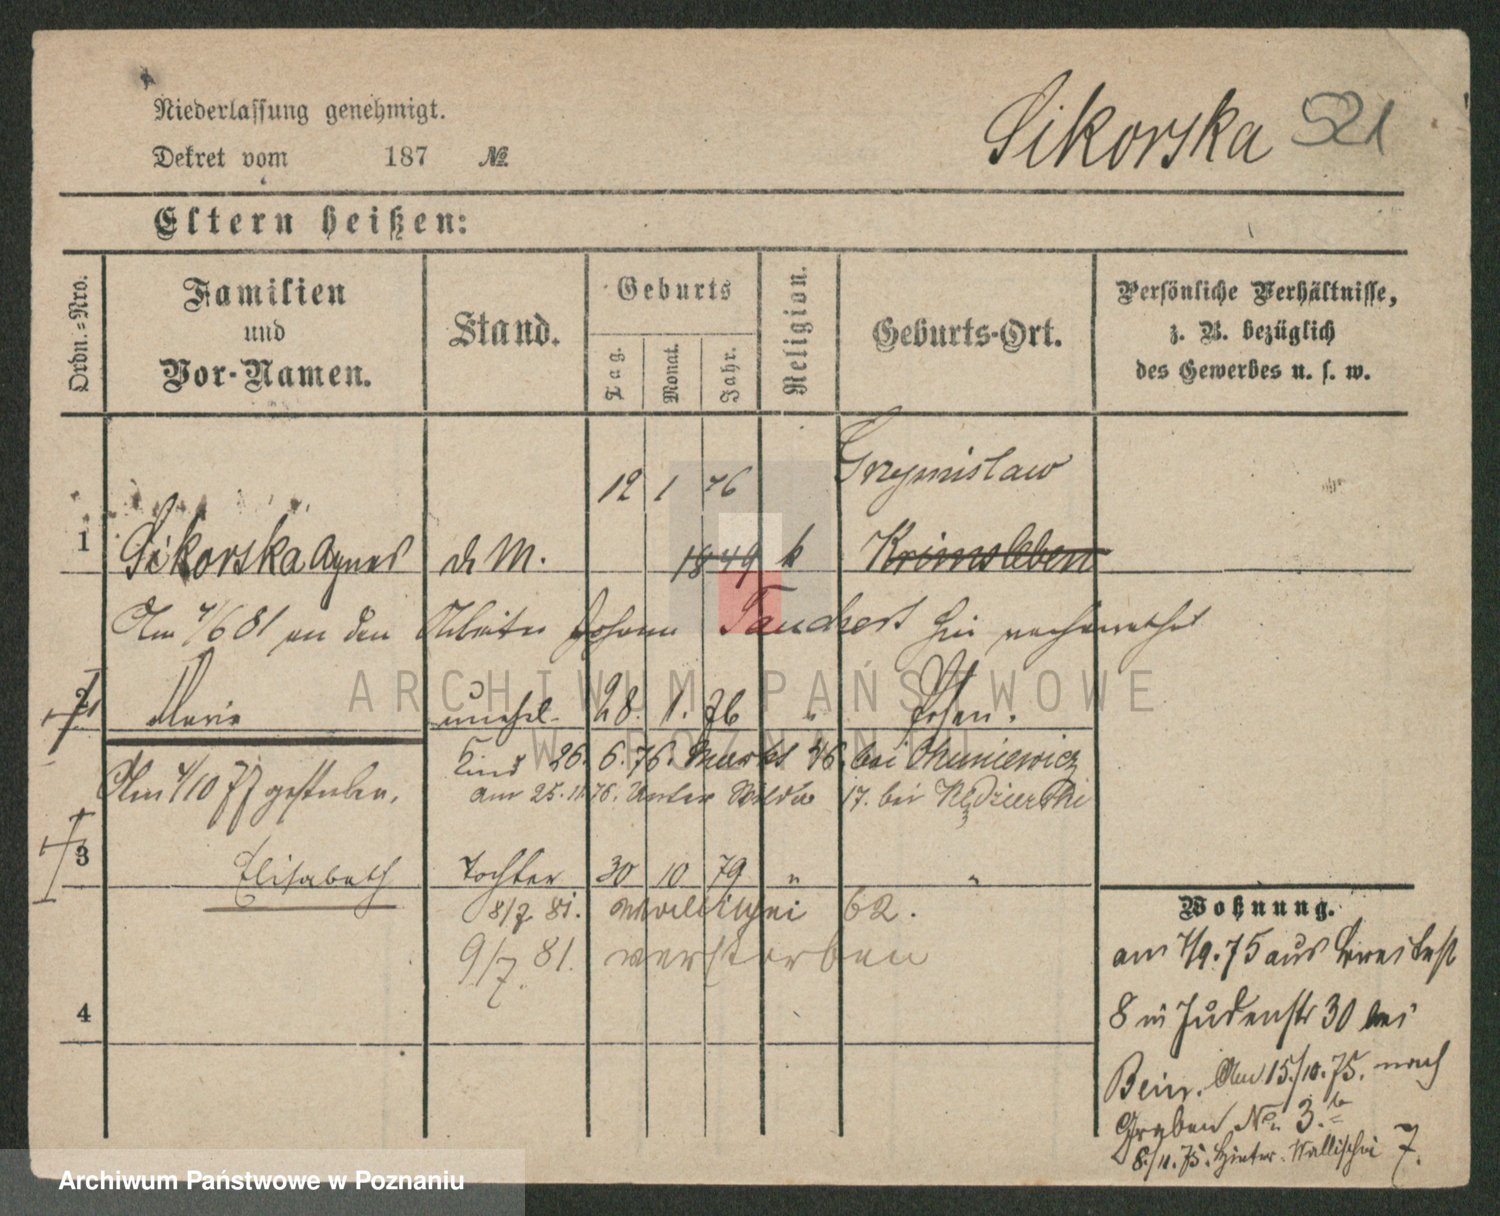 Niederlassung genehmigt.
Dekret vom 187 №
Sikorska 521
Eltern heißen:
Ordn.-Nro.
Familien
und
Vor-Namen.
Stand.
Geburts
Tag.
Monat.
Jahr.
Religion.
Geburts-Ort.
Persönliche Verhältnisse,
z. B. bezüglich
des Gewerbes u. s. w.
12 1 76 Grzymislaw
1 Sikorska Agnes d. M. 1849 k Krimsleben
Am 7/6 81 an den Arbeiter Johann Tauchert hier verheirathet
2 Marie unehel. 28. 1. 76 " Posen.
Kind 26. 6. 76. Markt 46. bei
Am 4/10 77 gestorben.
am 25. 11. 76. Unter Wilda 17. bei
3 Elisabeth Tochter 30 10 79 " "
8/7 81. Wallischei 62.
9/7. 81. verstorben
4
Wohnung.
am 7/9. 75 aus
8 in Judenstr 30 bei
Am 15/10. 75. nach
Graben No. 3.b
8./11. 75. Hinter. Wallischei 7.
ARCHIWUM PAŃSTWOWE
W POZNANIU
Archiwum Państwowe w Poznaniu